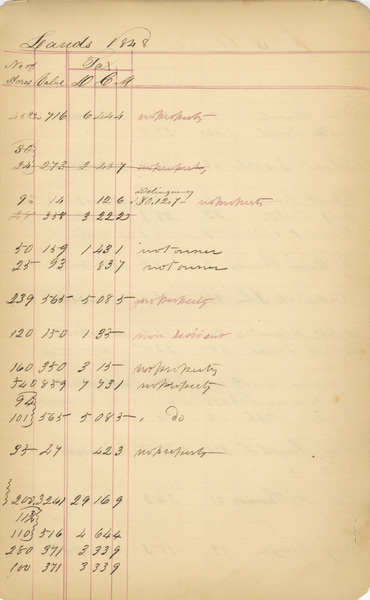 Lands 1848
No of Tax
Acres Value D C M
716 6 44 4 no property
35
24 273 2 45 7 no property
Delinquency
95 14 12 6 $0.12.7 no property
358 3 22 2
50 159 1 43 1 not owner
25 93 83 7 not owner
239 565 5 08 5 no property
120 150 1 35 non Resident
160 350 3 15 no property
340 859 7 73 1 no property
94
101 565 5 08 5 " do
95 47 42 3 no property
200 3241 29 16 9
113
110 516 4 64 4
280 371 3 33 9
100 371 3 33 9